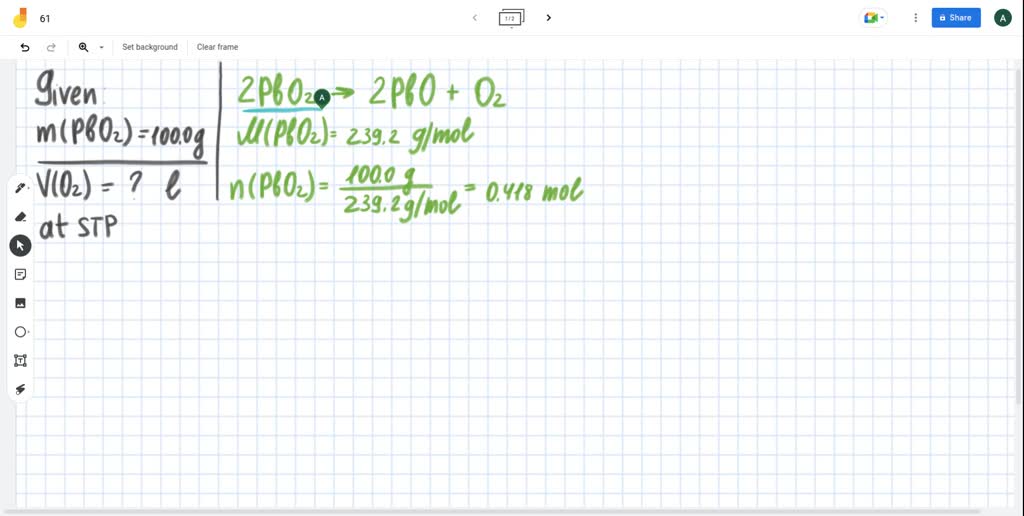 61
1/2
Share
A
Set background
Clear frame
Given
m(PbO₂)=100.0g
V(O₂) = ? l
at STP
2PbO₂ → 2PbO + O₂
A
M(PbO₂)= 239.2 g/mol
n(PbO₂)= 100.0 g / 239.2g/mol = 0.418 mol